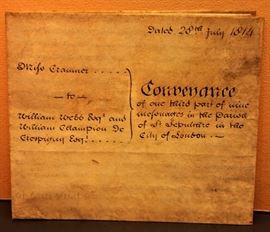 Dated 28th July 1814
Miss Cranmer . . . . .
— to —
William Webb Esqr and
William Champion De
Crespigny Esqr. . . . .
Conveyance
of one third part of nine
messuages in the Parish
of St Sepulchre in the
City of London . —